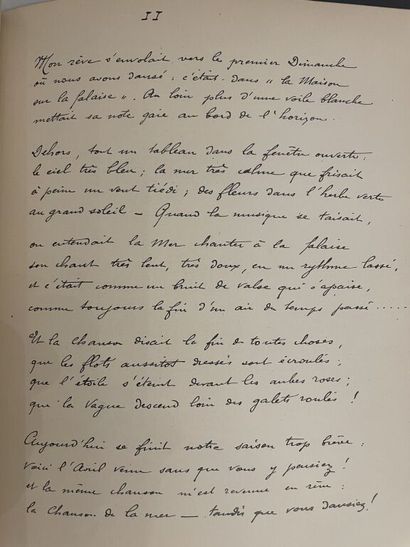 II
Mon rêve s'envolait vers le premier Dimanche
où nous avons dansé ; c'était dans "la Maison
sur la falaise". Au loin plus d'une voile blanche
mettait sa note gaie au bord de l'horizon.
Dehors, tout un tableau dans la fenêtre ouverte :
le ciel très bleu ; la mer très calme que frisait
à peine un vent tiédi ; des fleurs dans l'herbe verte
au grand soleil — Quand la musique se taisait,
on entendait la Mer chanter à la falaise
son chant très lent, très doux, en un rythme lassé,
et c'était comme un bruit de valse qui s'apaise,
comme toujours la fin d'un air du temps passé .....
Et la chanson disait la fin de toutes choses,
que les flots aussitôt dressés sont écroulés ;
que l'étoile s'éteint devant les aubes roses ;
que la vague descend loin des galets roulés !
Aujourd'hui se finit notre saison trop brève :
voici l'Avril venu sans que vous y pensiez !
et la même chanson m'est revenue en rêve :
la Chanson de la mer — tandis que vous dansiez !